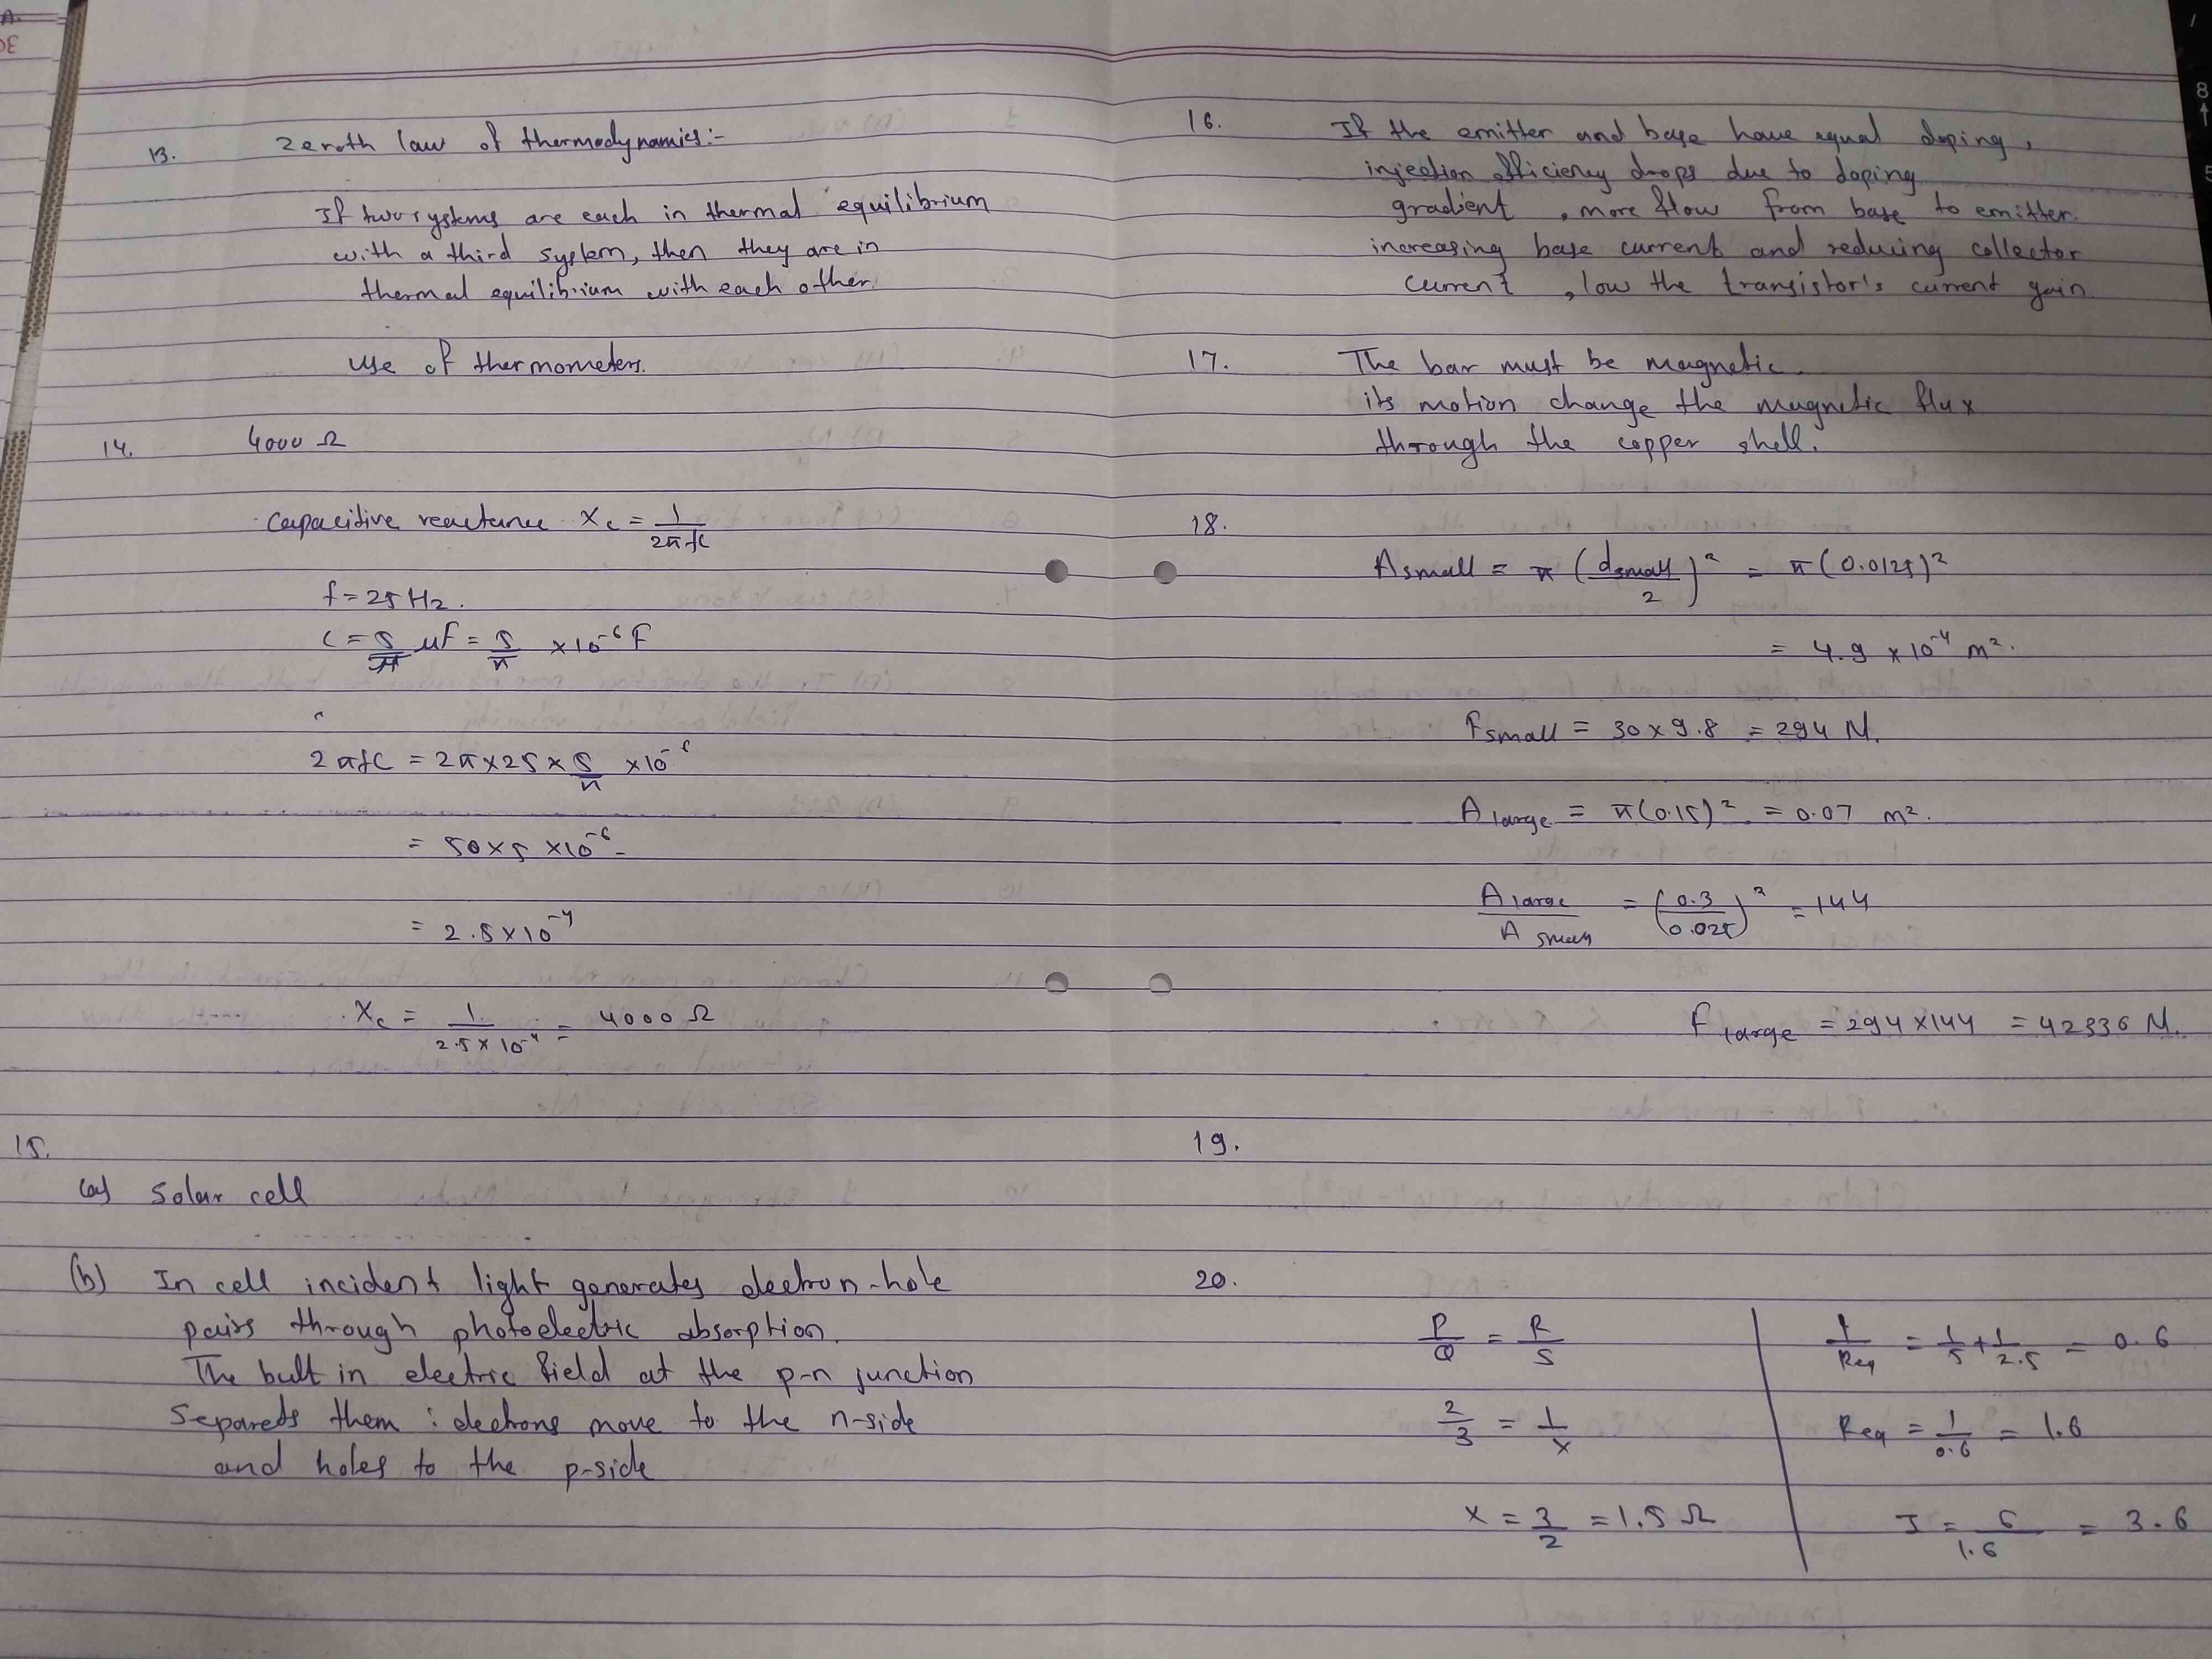 13. Zeroth law of thermodynamics:-
If two systems are each in thermal equilibrium
with a third system, then they are in
thermal equilibrium with each other.
Use of thermometers.
14. 4000 Ω
Capacitive reactance Xc = 1/2πfC
f = 25 Hz.
C = 5/π μF = 5/π × 10⁻⁶ F
2πfC = 2π × 25 × 5/π × 10⁻⁶
= 50 × 5 × 10⁻⁶
= 2.5 × 10⁻⁴
Xc = 1/2.5 × 10⁻⁴ = 4000 Ω
15.
(a) Solar cell
(b) In cell incident light generates electron-hole
pairs through photoelectric absorption.
The bult in electric field at the p-n junction
Separets them : electrons move to the n-side
and holes to the p-side
16. If the emitter and base have equal doping,
injection efficiency drops due to doping
gradient, more flow from base to emitter.
increasing base current and reducing collector
current, low the transistor's current gain
17. The bar must be magnetic.
its motion change the magnetic flux
through the copper shell.
18.
A small = π (d small/2)² = π (0.0125)²
= 4.9 × 10⁻⁴ m².
F small = 30 × 9.8 = 294 N.
A large = π(0.15)² = 0.07 m².
A large/A small = (0.3/0.025)² = 144
F large = 294 × 144 = 42336 N.
19.
20.
P/Q = R/S
2/3 = 1/x
x = 3/2 = 1.5 Ω
1/Req = 1/5 + 1/2.5 = 0.6
Req = 1/0.6 = 1.6
I = 6/1.6 = 3.6